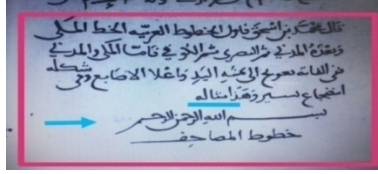 قال محمد بن اسحق فاول الخطوط العربيه الخط المكي
وبعده المدني ثم البصري ثم الكوفي فاما المكي والمدني
ففي الفاته تعويج الى يمنه اليد واعلا الاصابع وفي شكله
انضجاع يسير وهذا مثاله
بسم الله الرحمن الرحيم
خطوط المصاحف